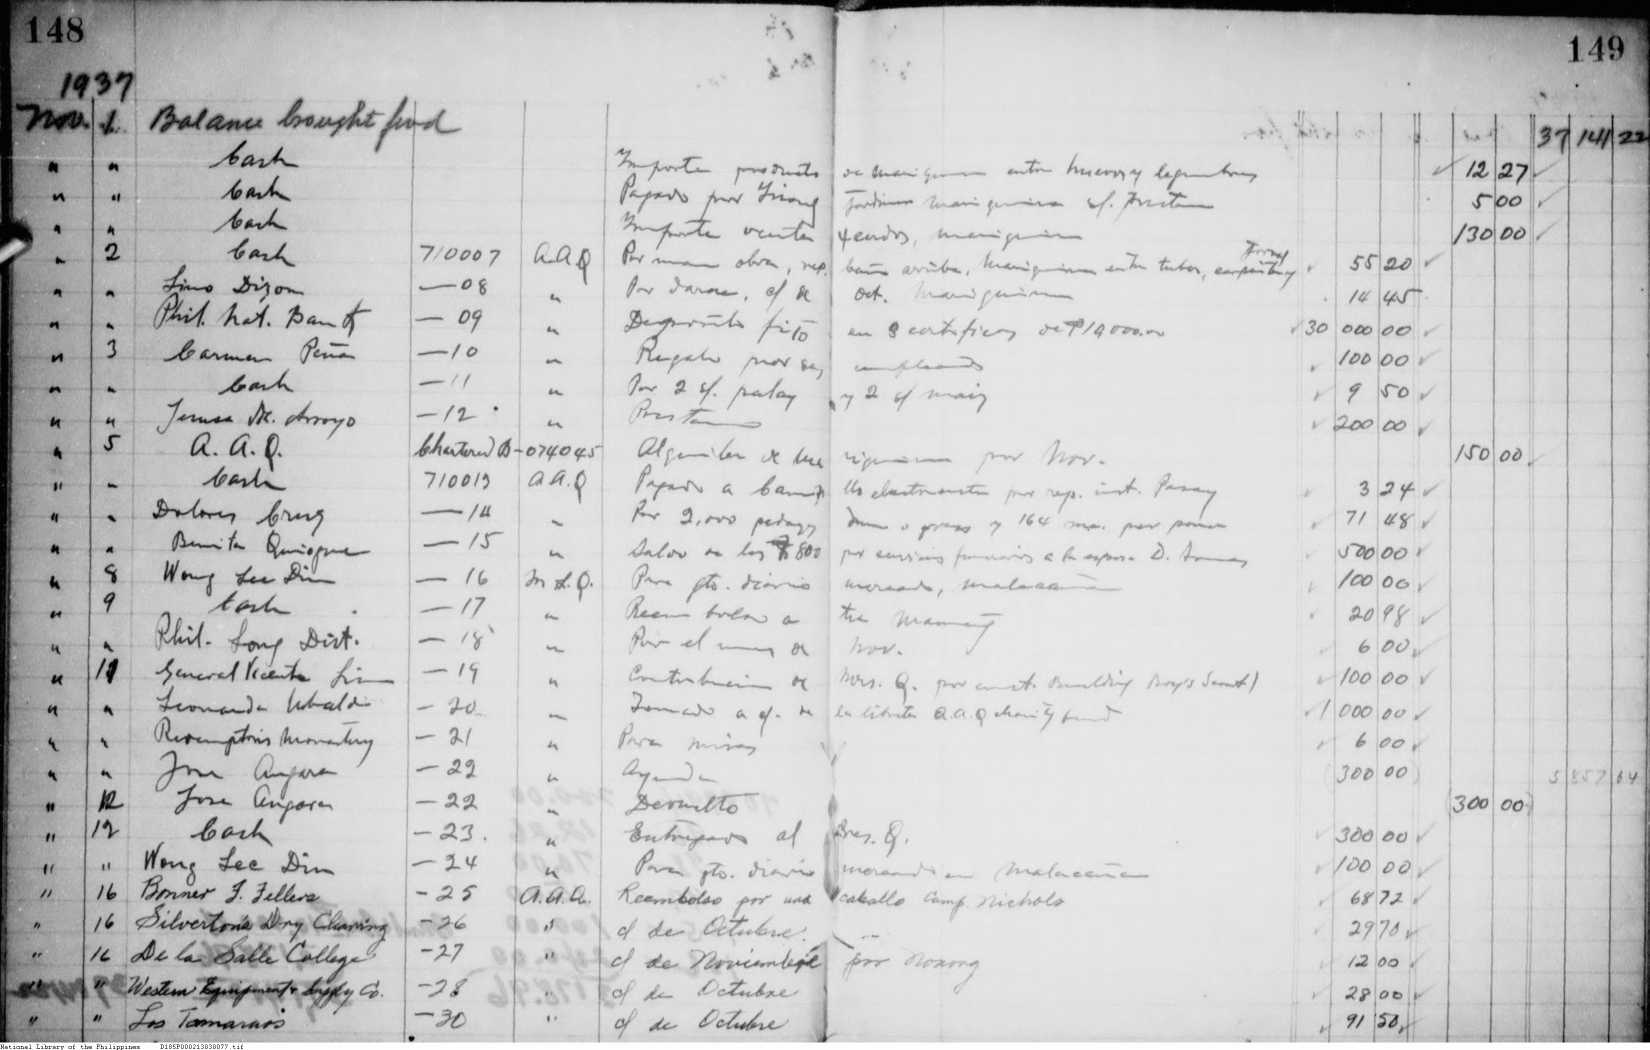 148 149
1937
Nov. 1 Balance brought fwd 37 141 22
" " Cash Importe producto de Mariquina entre huevos y legumbres 12 27
" " Cash Pagado por jardinero Mariquina 5 00
" " Cash Importe venta 4 cerdos, Mariquina 130 00
" 2 Cash 710007 A.A.Q Por mano obra, rep. arriba, Mariquina entre tubos, carpintery 55 20
" " Lino Dizon — 08 " Por c/ de Oct. Mariquina 14 45
" " Phil. Nat. Bank — 09 " Deposito fijo en 3 certificos de ₱10000.00 30 000 00
" 3 Carmen Peña — 10 " Regalo por sus empleados 100 00
" " Cash — 11 " Por 2 s/. palay y 2 s/ maiz 9 50
" " Teresa de Arroyo — 12 " Prestamo 200 00
" 5 A. A. Q. Chartered B - 074045 Alquiler de Mariquina por Nov. 150 00
" " Cash 710013 A.A.Q Pagado a electricista por rep. inst. Pasay 3 24
" " Dolores Cruz — 14 " Por 2,000 pedazos y 164 por 71 48
" " Benita Quiogue — 15 " Saldo de los ₱800 por servicios funerarios a la esposa D. 500 00
" 8 Wong Lee Din — 16 M.L.Q. Para gto. diario mercado, Malacañan 100 00
" 9 Cash — 17 " Reembolso a 20 98
" " Phil. Long Dist. — 18 " Por el mes de Nov. 6 00
" 11 General Vicente Lim — 19 " Contribucion de Mrs. Q. por const. Building Boy's Scout 100 00
" " Leonarda Ubaldo — 20 " Tomado a c/. de la libreta A.A.Q charity fund 1 000 00
" " Redemptoris Monastery — 21 " Para misas 6 00
" " Jose Angara — 22 " Ayuda (300 00) 5 857 64
" 12 Jose Angara — 22 " Devuelto (300 00)
" 12 Cash — 23. " Entregado al Pres. Q. 300 00
" " Wong Lee Din — 24 " Para gto. diario mercado en Malacañan 100 00
" 16 Bonner F. Fellers — 25 A.A.Q. Reembolso por una caballo Camp Nichols 68 72
" 16 Silverton's Dry Cleaning — 26 " c/ de Octubre. 29 70
" 16 De la Salle College — 27 " c/ de Noviembre por Nonong 12 00
" " Western Equipment & Supply Co. — 28 " c/ de Octubre 28 00
" " Los Tamaraos — 30 " c/ de Octubre 91 50
National Library of the Philippines D185P000213838077.tif